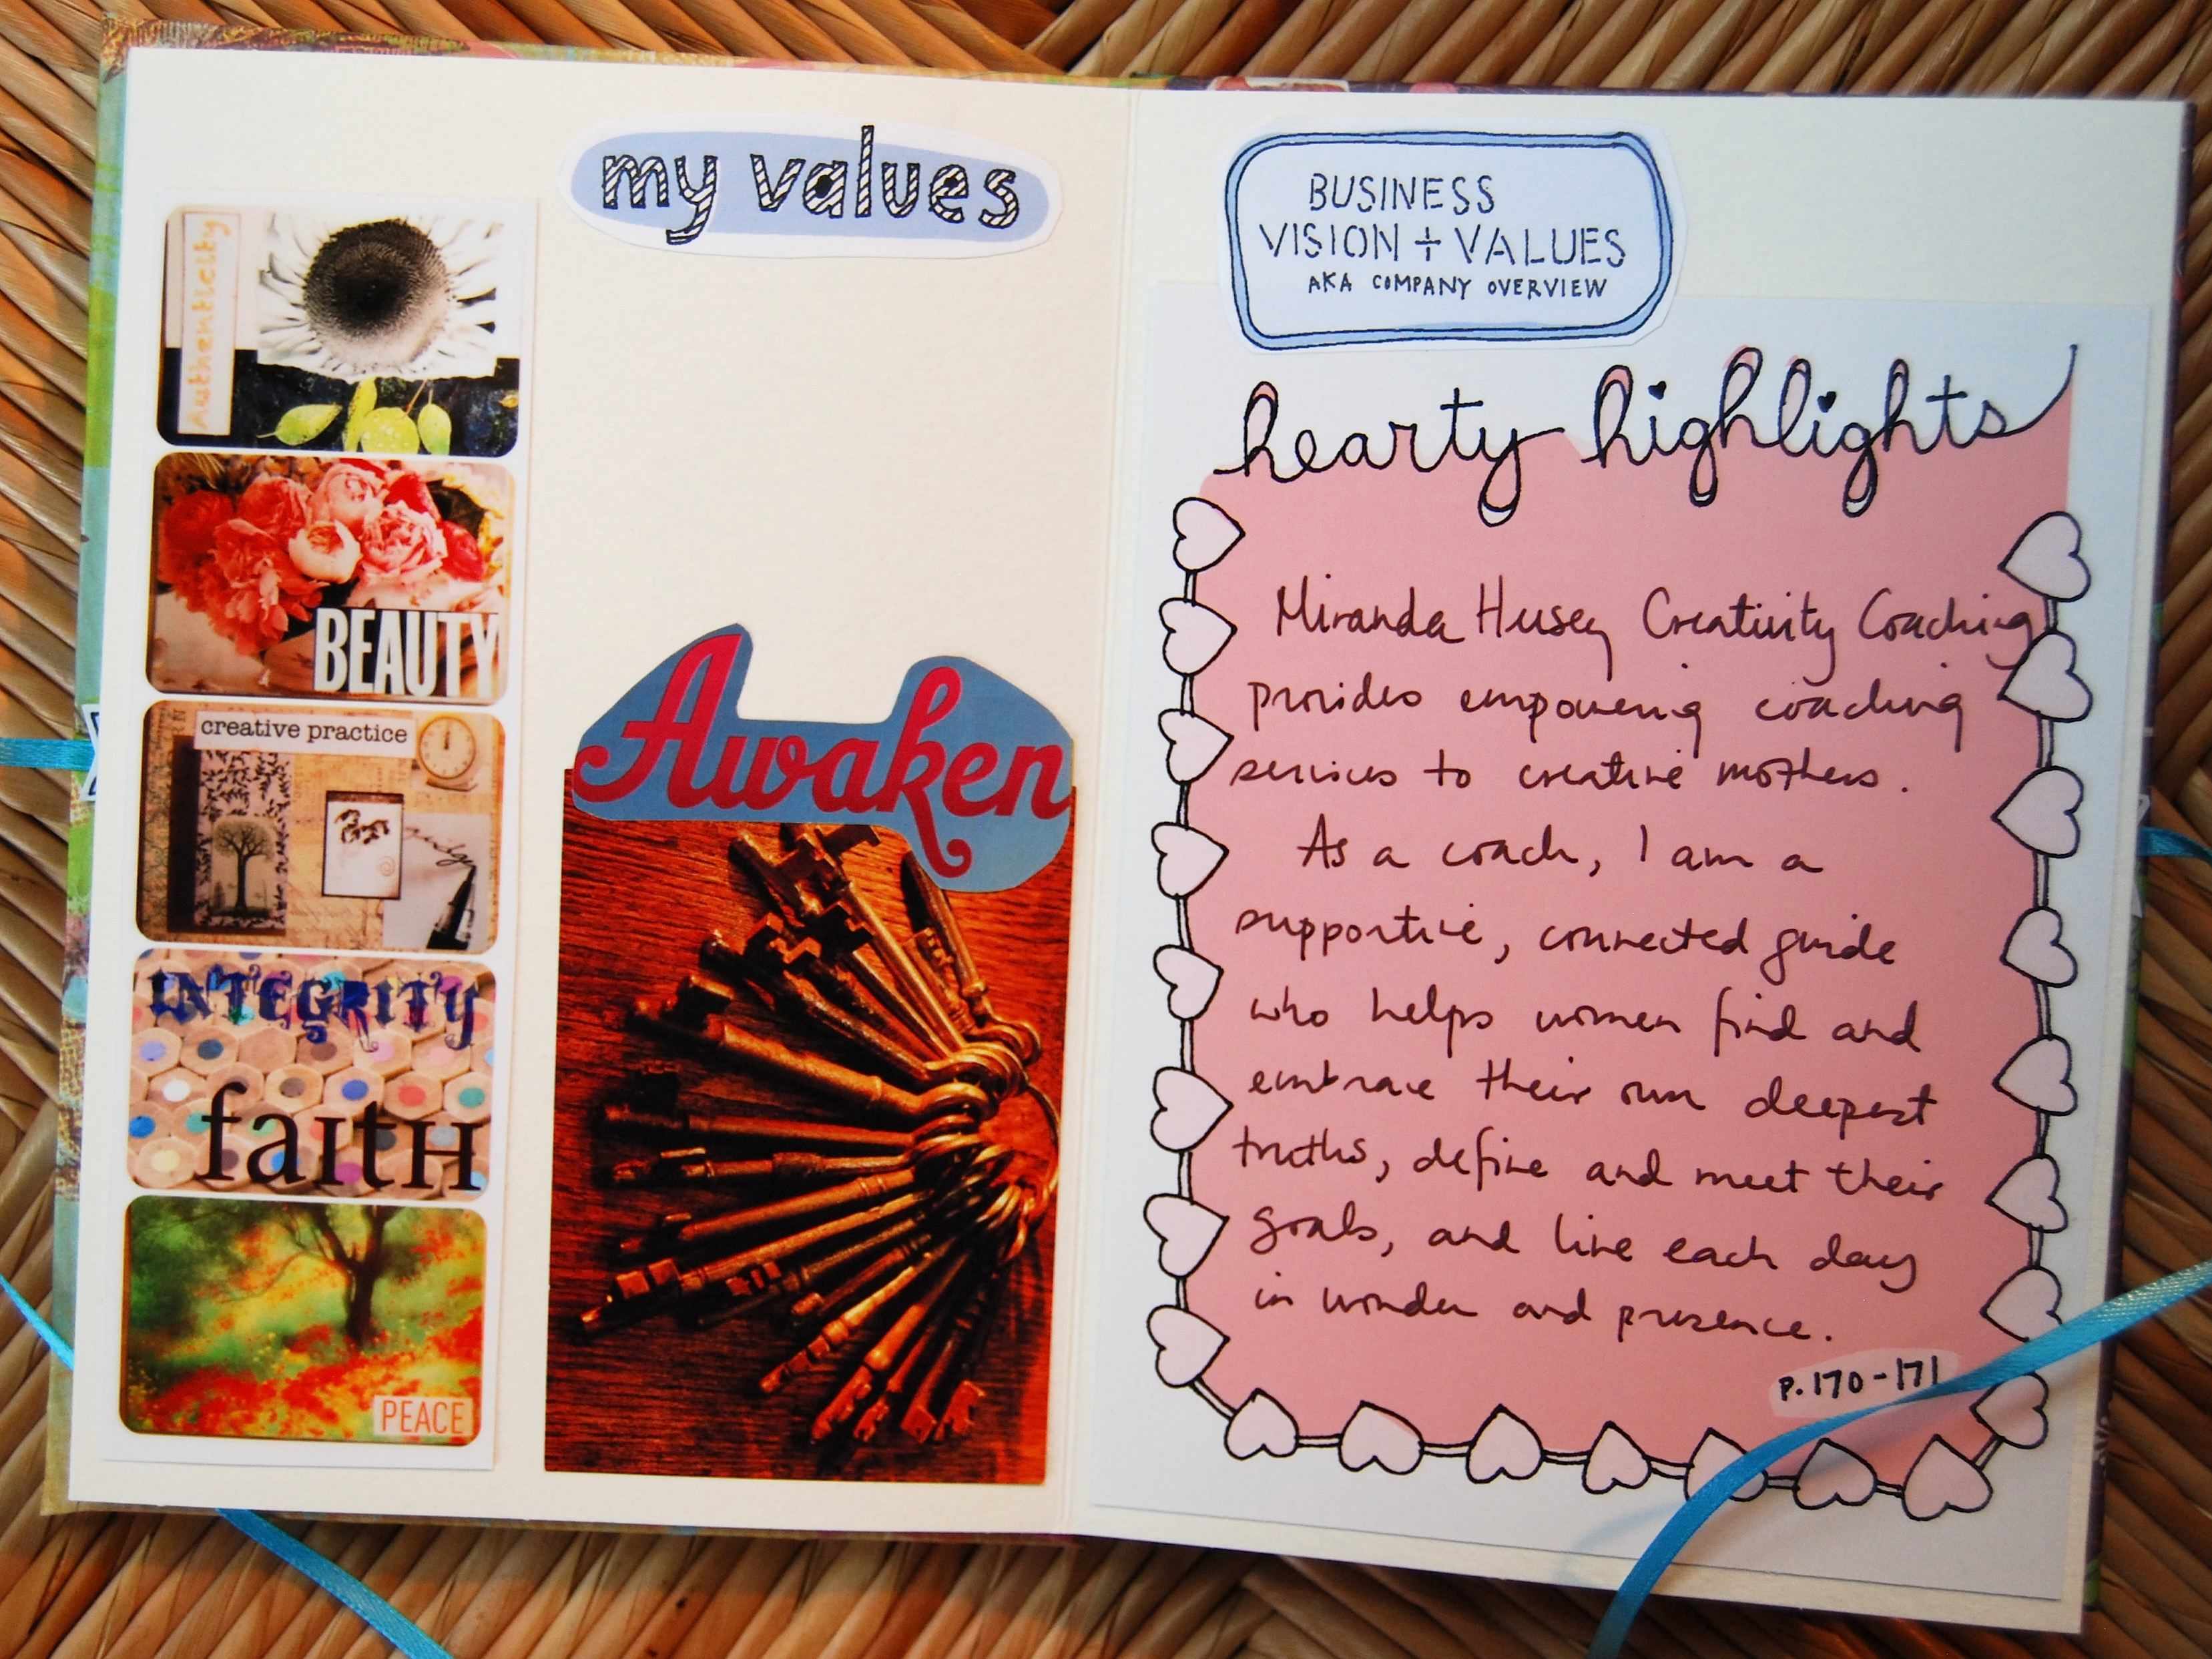 my values
Authenticity
BEAUTY
creative practice
INTEGRITY
faith
PEACE
Awaken
BUSINESS
VISION + VALUES
AKA COMPANY OVERVIEW
hearty highlights
Miranda Husey Creativity Coaching
provides empowering coaching
services to creative mothers.
As a coach, I am a
supportive, connected guide
who helps women find and
embrace their own deepest
truths, define and meet their
goals, and live each day
in wonder and presence.
p. 170-171